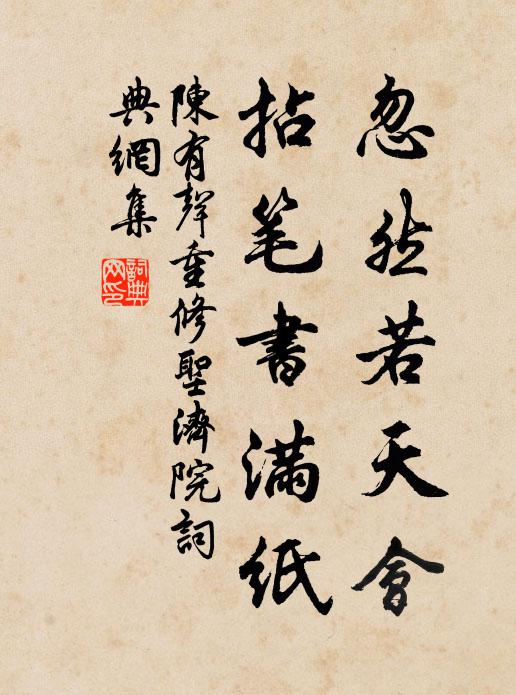 忽然若天會
拈笔書滿紙
陳有聲重修聖濟院詞
典網集
詞典
网印